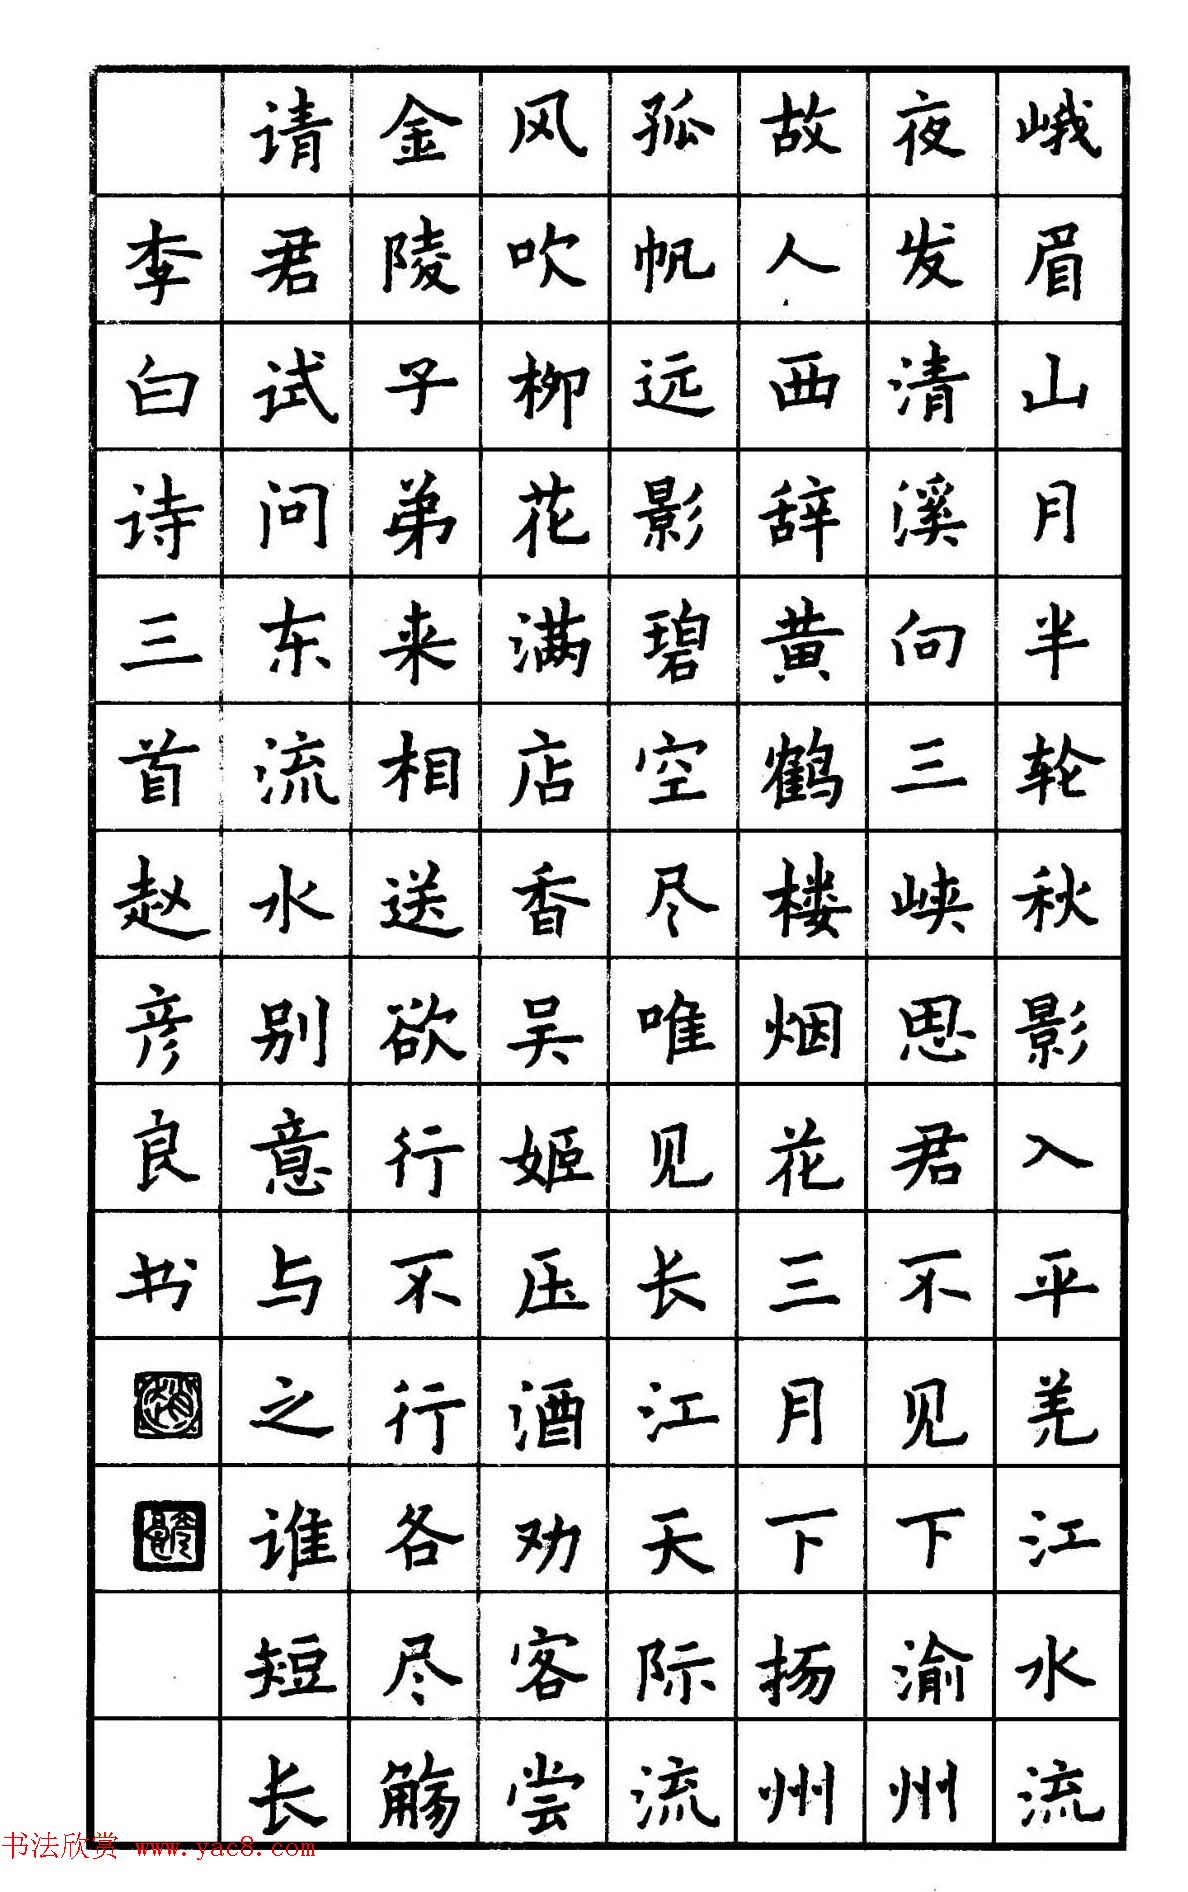 峨眉山月半轮秋影入平羌江水流
夜发清溪向三峡思君不见下渝州
故人西辞黄鹤楼烟花三月下扬州
孤帆远影碧空尽唯见长江天际流
风吹柳花满店香吴姬压酒劝客尝
金陵子弟来相送欲行不行各尽觞
请君试问东流水别意与之谁短长
李白诗三首赵彦良书
书法欣赏 www.yac8.com